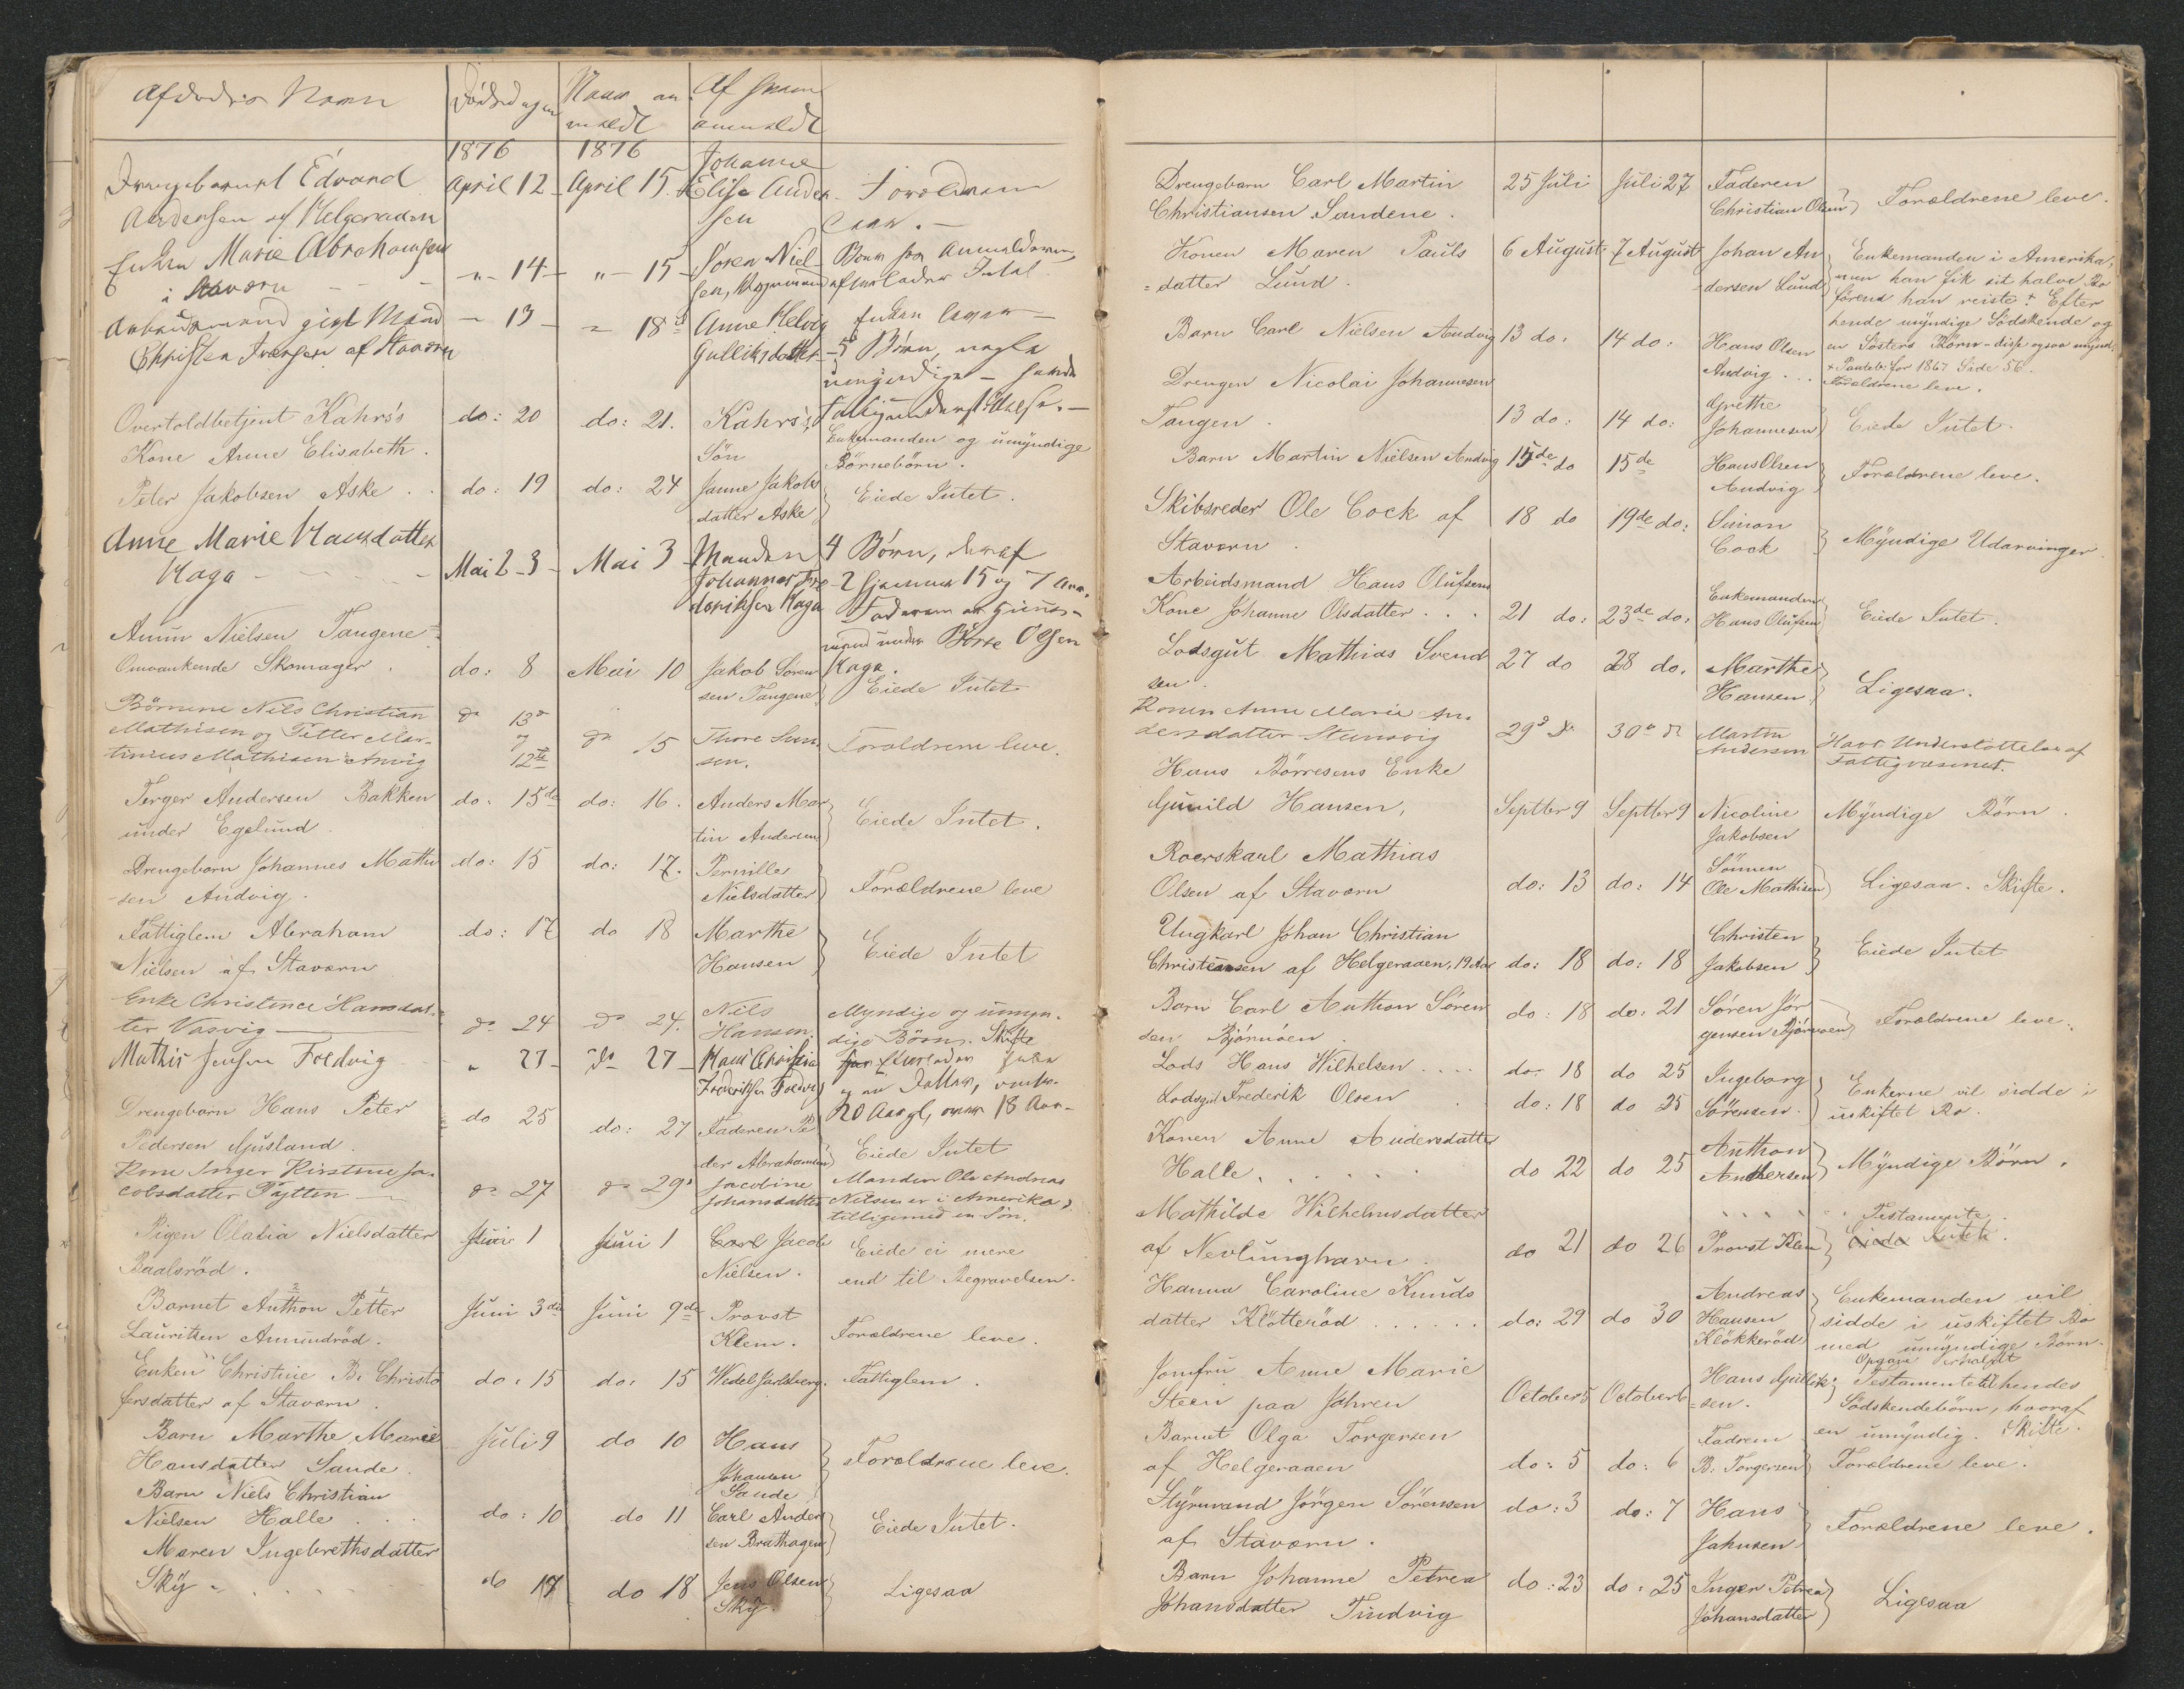 Afdødes Navn
Dødsdagen
Naar anmeldt
Af hvem anmeldt
1876 1876
Drengebarnet Edvard April 12 April 15. Johanne Elise Ander- Forældrene
Andersen af Helgeraaen ssen Leve. —
Enken Marie Abrahamsen
i Stavern " 14 " 15 Søren Niel-
sen, Vognmand
Børn
Anmelderen,
efterlader Intet
Arbeidsmand gift Mand 13 18 Anne Helvig Enken
Christen Iversen af Stavern Gulliksdatter 5 Børn, nogle
umyndige
Overtoldbetjent Kahrs's do: 20 do: 21. Kahrs's
Kone Anne Elisabeth. Sön Enkemanden og umyndige
Börnebörn.
Peter Jakobsen Aske . . do: 19 do: 24 Janne Jakobs
datter Aske Eiede Intet.
Anne Marie Hansdatter
Haga Mai 2-3 Mai 3 Manden 4 Børn, deraf
Johannes Fre 2 hjemme 15 og 7 Aar.
deriksen Haga Faderen er Huus-
mand under Börre Olsen
Haga.
Amun Nielsen Tangene
Omvankende Skomager . do: 8 Mai 10 Jakob Sören
sen Tangene Eiede Intet
Börnene Nils Christian do 13de
Mathisen og Petter Mar- og do 15 Thore Sven- Forældrene leve.
tinius Mathisen Anvig 12te sen.
Terger Andersen Bakken do: 15de do: 16. Anders Mar
under Egelund tin Andersen Eiede Intet.
Drengebarn Johannes Mathi do: 15 do: 17. Pernille
sen Andvig. Nielsdatter Forældrene leve
Fattiglem Abraham do: 17 do 18 Marthe
Nielsen af Stavern Hansen Eiede Intet
Enke Christence Hansdat-
ter Vasvig do 24 do 24. Nils Hansen. Myndige og umyn-
dige Börn. Skifte
Mathis Jensen Foldvig " 27 do 27 Hans Christian
Frederiksen Foldvig
og en Datter,
20 Aar gl, over 18 Aar
Drengebarn Hans Peter
Pedersen Gjusland. do 25 do: 27 Faderen Pe
der Abrahamsen Eiede Intet
Kone Inger Kirstine Ja-
cobsdatter Pytten do 27 do 29de Jacobine
Johansdatter Manden Ole Andreas
Nilsen er i Amerika,
tilligemed en Sön.
Pigen Olava Nielsdatter Juni 1 Juni 1 Carl Jacob Eiede ei mere
Baalsröd. Nielsen. end til Begravelsen.
Barnet Anthon Petter Juni 3de Juni 9de Provst
Lauritsen Amundröd. Klem. Forældrene leve.
Enken Christine B. Christo do: 15 do: 15 Wedel Jarlsberg. Fattiglem.
fersdatter af Stavern.
Barn Marthe Marie Juli 9 do 10 Hans
Hansdatter Sande. Johansen Sande Forældrene leve.
Barn Niels Christian
Nielsen Halle do: 10 do 11 Carl Ander
sen Brathagen Eiede Intet.
Maren Ingebrethsdatter
Sky do 17 do 18 Jens Olsen
Sky. Ligesaa
Drengebarn Carl Martin 25 Juli Juli 27 Faderen
Christiansen Sandene. Christian Olsen Forældrene leve.
Konen Maren Pauls 6 August 7 August Johan An
datter Lund. dersen Lund Enkemanden i Amerika,
men han fik sit halve Bo
förend han reiste. + Efter
hende myndige Södskende og
en Sösters Börn - disse ogsaa mynd.
+ Panteb: for 1867 Side 56.
Barn Carl Nielsen Andvig 13 do: 14 do: Hans Olsen
Andvig . . . Forældrene leve.
Drengen Nicolai Johannesen
Tangen. 13 do: 14 do: Grethe
Johannesen Eiede Intet.
Barn Martin Nielsen Andvig 15de do 15de Hans Olsen
Andvig Forældrene leve.
Skibsreder Ole Cock af 18 do 19de do: Simon
Stavern. Cock Myndige Udarvinger.
Arbeidsmand Hans Olufsens
Kone Johanne Olsdatter . . . 21 do: 23de do: Enkemanden
Hans Olufsen Eiede Intet.
Lodsgut Mathias Svend 27 do 28 do. Marthe
sen. Hansen Ligesaa.
Konen Anne Marie An-
dersdatter Stensvig 29de do 30te do Martin
Andersen Havt Understöttelse af
Fattigvæsenet.
Hans Börresens Enke
Gunild Hansen, Septber 9 Septber 9 Nicoline Myndige Börn.
Jakobsen
Roerskarl Mathias
Olsen af Stavern do: 13 do: 14 Sönnen
Ole Mathisen Ligesaa. Skifte.
Ungkarl Johan Christian
Christiansen af Helgeraaen, 19 Aar do: 18 do: 18 Christen
Jakobsen Eiede Intet
Barn Carl Anthon Sören do: 18 do: 21 Sören Jör
sen Björnöen gensen Björnöen Forældrene leve.
Lods Hans Wilhelsen . . . . do: 18 do 25 Ingeborg Enkerne vil sidde i
Lodsgut Frederik Olsen do: 18 do 25 Sörensen. uskiftet Bo.
Konen Anne Andersdatter
Halle. do 22 do 25 Anthon
Andersen Myndige Börn.
Mathilde Wilhelmsdatter Testamente.
af Nevlunghavn. do 21 do 26 Provst Klem Eiede Intet.
Hanna Caroline Knuds
datter Klötteröd . . . . . . do: 29 do 30 Andreas
Hansen
Klökkeröd Enkemanden vil
sidde i uskiftet Bo
med umyndige Börn.
Jomfru Anne Marie
Steen paa Jahren October 5 October 6 Hans Gullik-
sen. Opgave erholdt
Testamente til hendes
Södskendebörn, hvoraf
en umyndig. Skifte.
Barnet Olga Torgersen
af Helgeraaen do: 5 do: 6 Faderen
B. Torgersen Forældrene leve.
Styrmand Jörgen Sörensen do: 3 do: 7 Hans
af Stavern. Jahnsen Forældrene leve.
Barn Johanne Petrea do: 23 do: 25 Inger Petrea
Johansdatter Tindvig Johansdatter Ligesaa